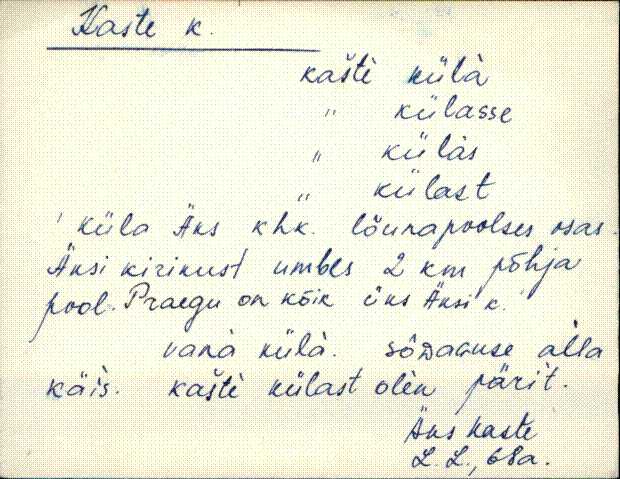 Kaste k.
kašti külà
" külasse
" küläs
" külast
' küla Äks khk. lõunapoolses osas.
Äksi kirikust umbes 2 km põhja
pool. Praegu on kõik üks Äksi k.
vanà külà. alla
käis. kašti külast olèn pärit.
Äks Kaste
L. L., 68a.